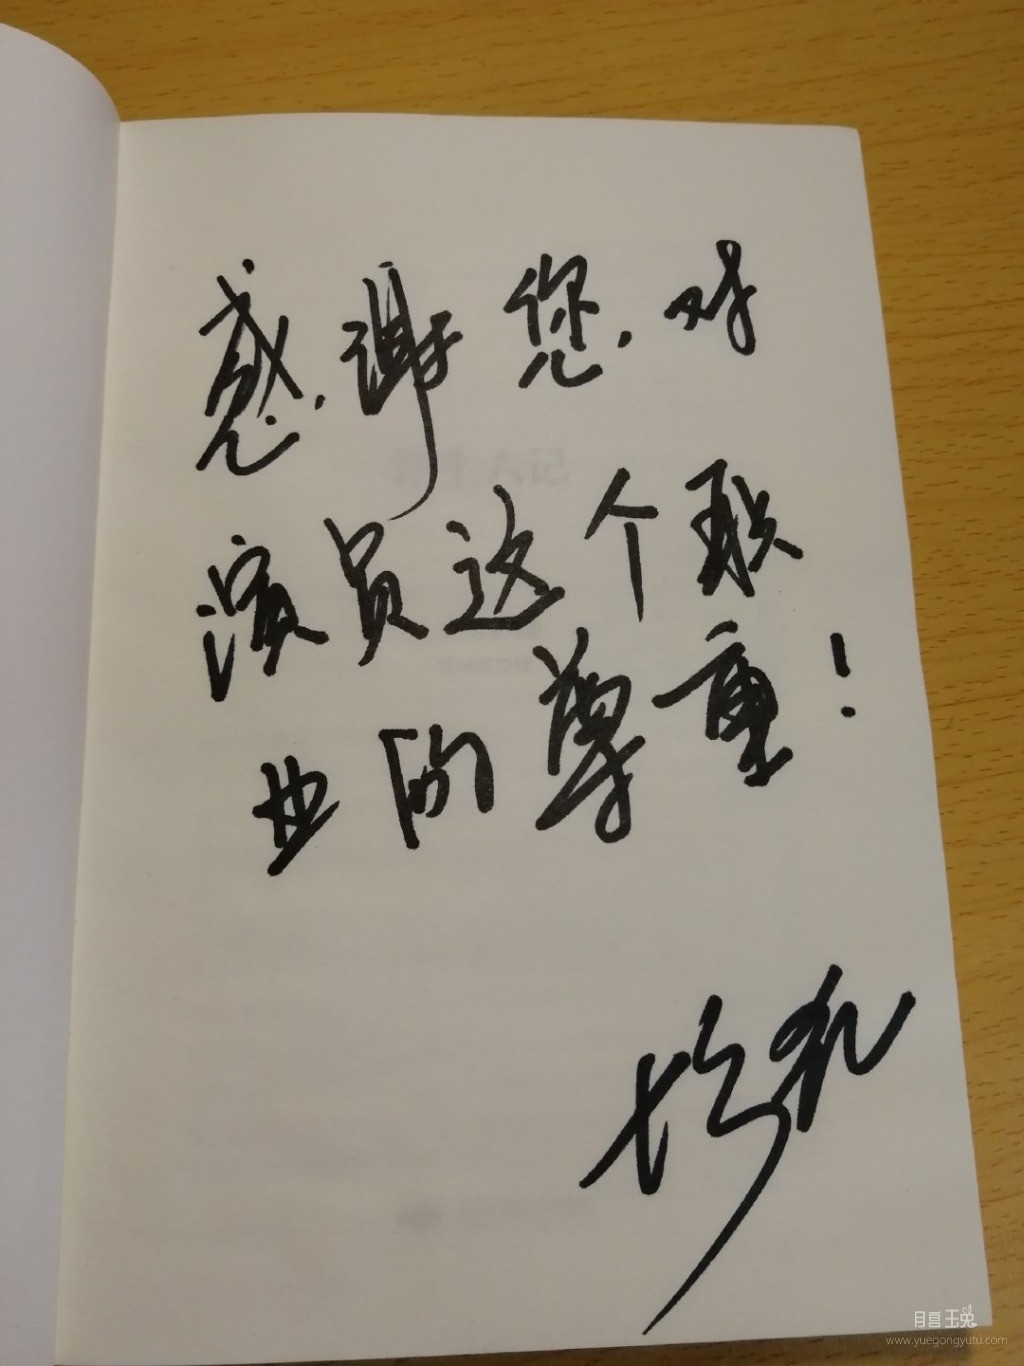 感谢您对
演员这个职
业的尊重!
月宫玉兔
www.yuegongyutu.com